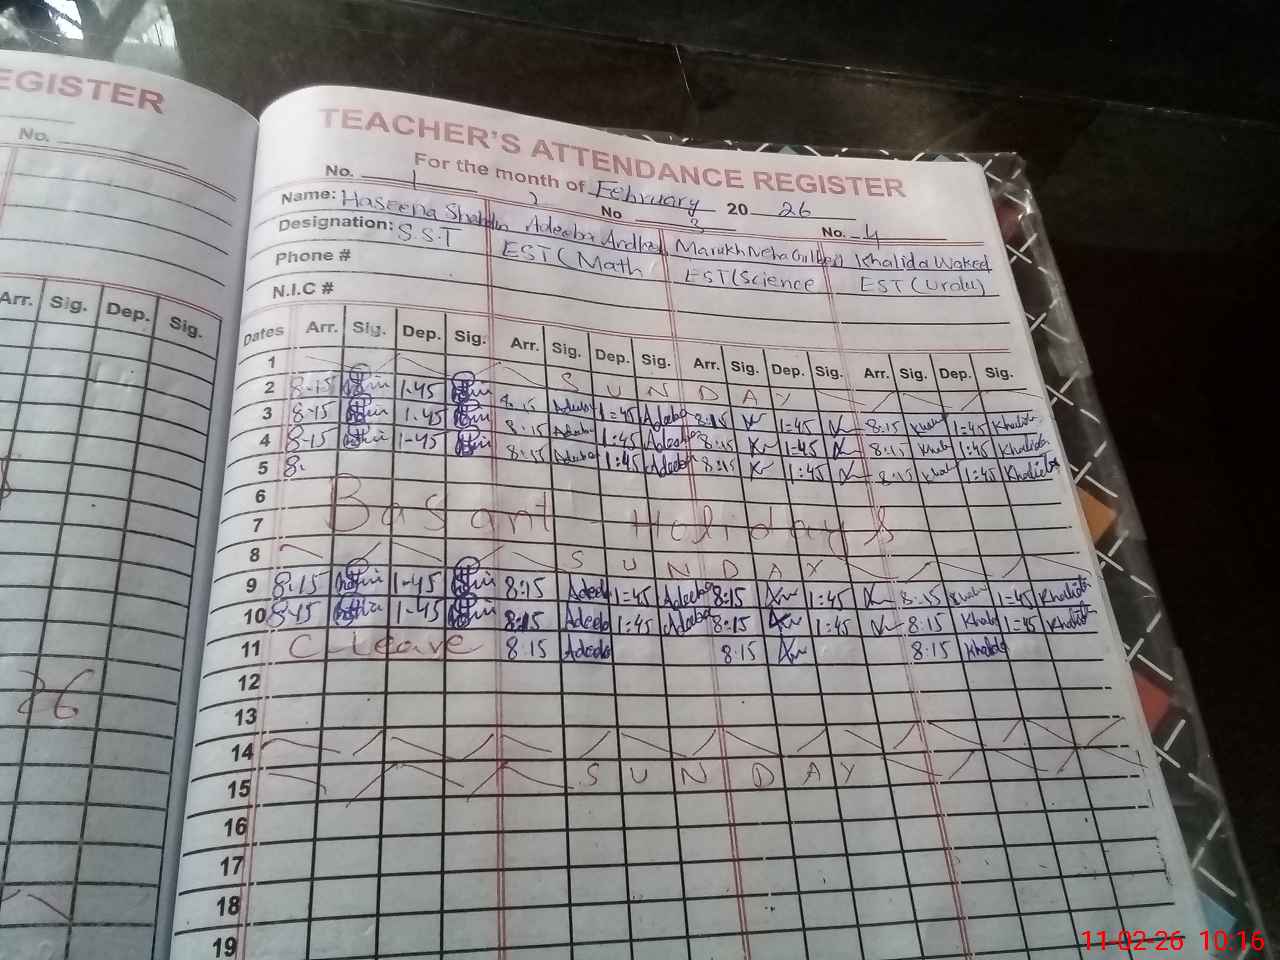 EGISTER
No.
Arr. Sig. Dep. Sig.
26
TEACHER'S ATTENDANCE REGISTER
For the month of February 2026
No. 1 No 3 No. 4
Name: Haseena Adeeba Khalida
Designation: S.S.T EST (Math EST (Science EST (Urdu)
Phone #
N.I.C #
Dates Arr. Sig. Dep. Sig. Arr. Sig. Dep. Sig. Arr. Sig. Dep. Sig. Arr. Sig. Dep. Sig.
1 SUNDAY
2 8-15 1-45 8:15 1=45 Adeeba 8:15 1:45 8:15 1:45 Khalida
3 8-15 1-45 8:15 1:45 Adeeba 8:15 1-45 8:15 1:45 Khalida
4 8-15 1-45 8:15 1:45 Adeeba 8:15 1:45 8:15 1:45 Khalida
5 8.
6 Basant Holidays
7
8 SUNDAY
9 8-15 1-45 8:15 Adeeb 1=45 Adeeba 8:15 1:45 8:15 1=45 Khalida
10 8-15 1-45 8:15 Adeeb 1:45 Adeeba 8:15 1:45 8:15 Khalid 1=45 Khalida
11 C Leave 8:15 Adeeb 8:15 8:15 Khalida
12
13
14
15 SUNDAY
16
17
18
19
11-02-26 10:16